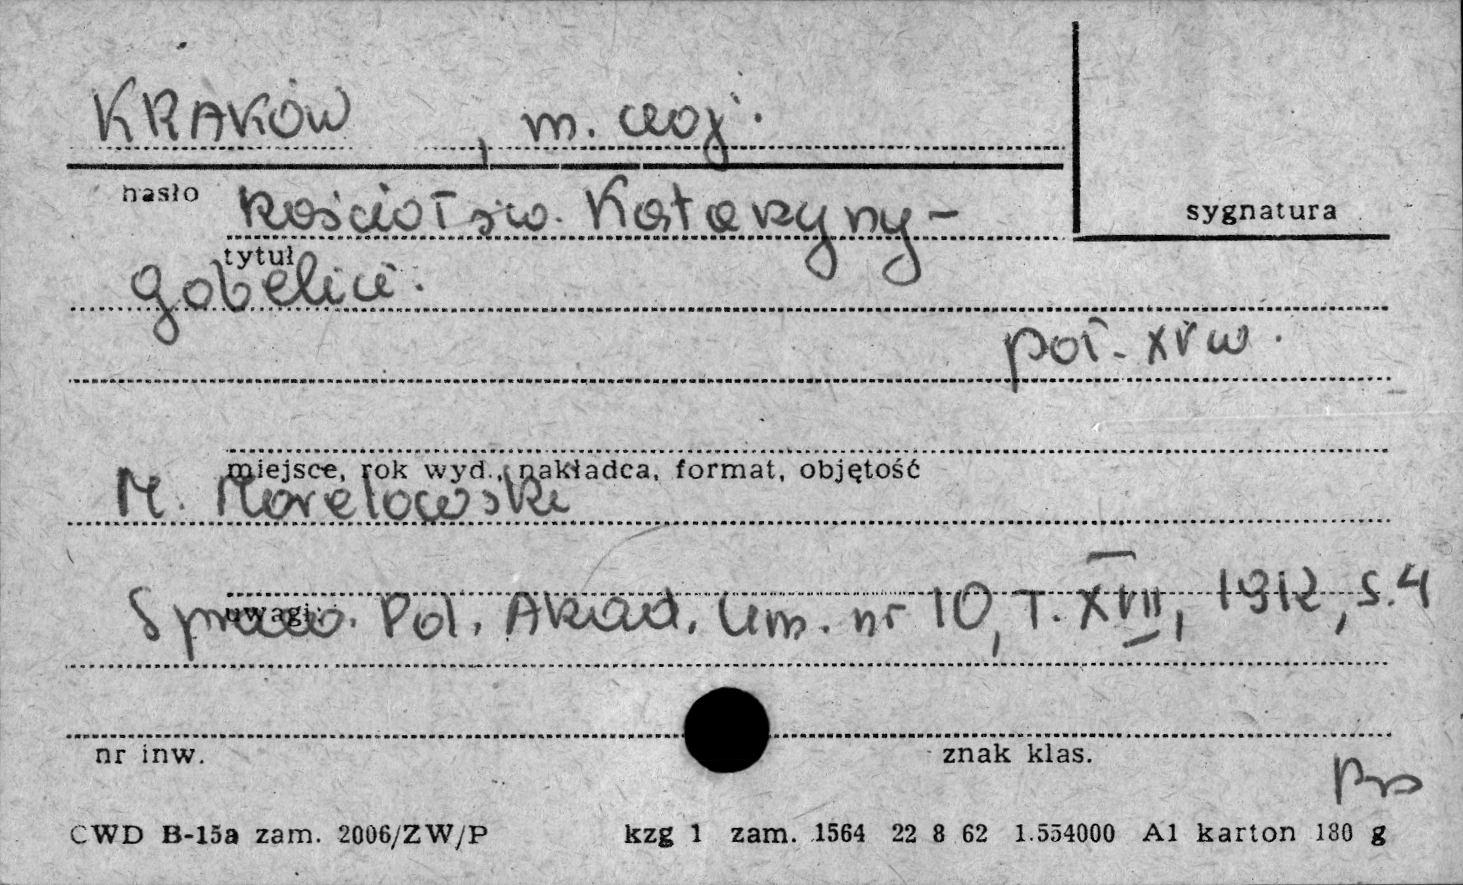 KRAKÓW , m. woj.
hasło
sygnatura
kościół św. Katarzyny -
tytuł
gobelin.
poł. XV w.
miejsce, rok wyd., nakładca, format, objętość
M. Morelowski
uwagi:
Spraw. Pol. Akad. Um. nr 10, T. XVII, 1912, s. 4
nr inw.
znak klas.
CWD B-15a zam. 2006/ZW/P kzg 1 zam. 1564 22 8 62 1.554000 A1 karton 180 g